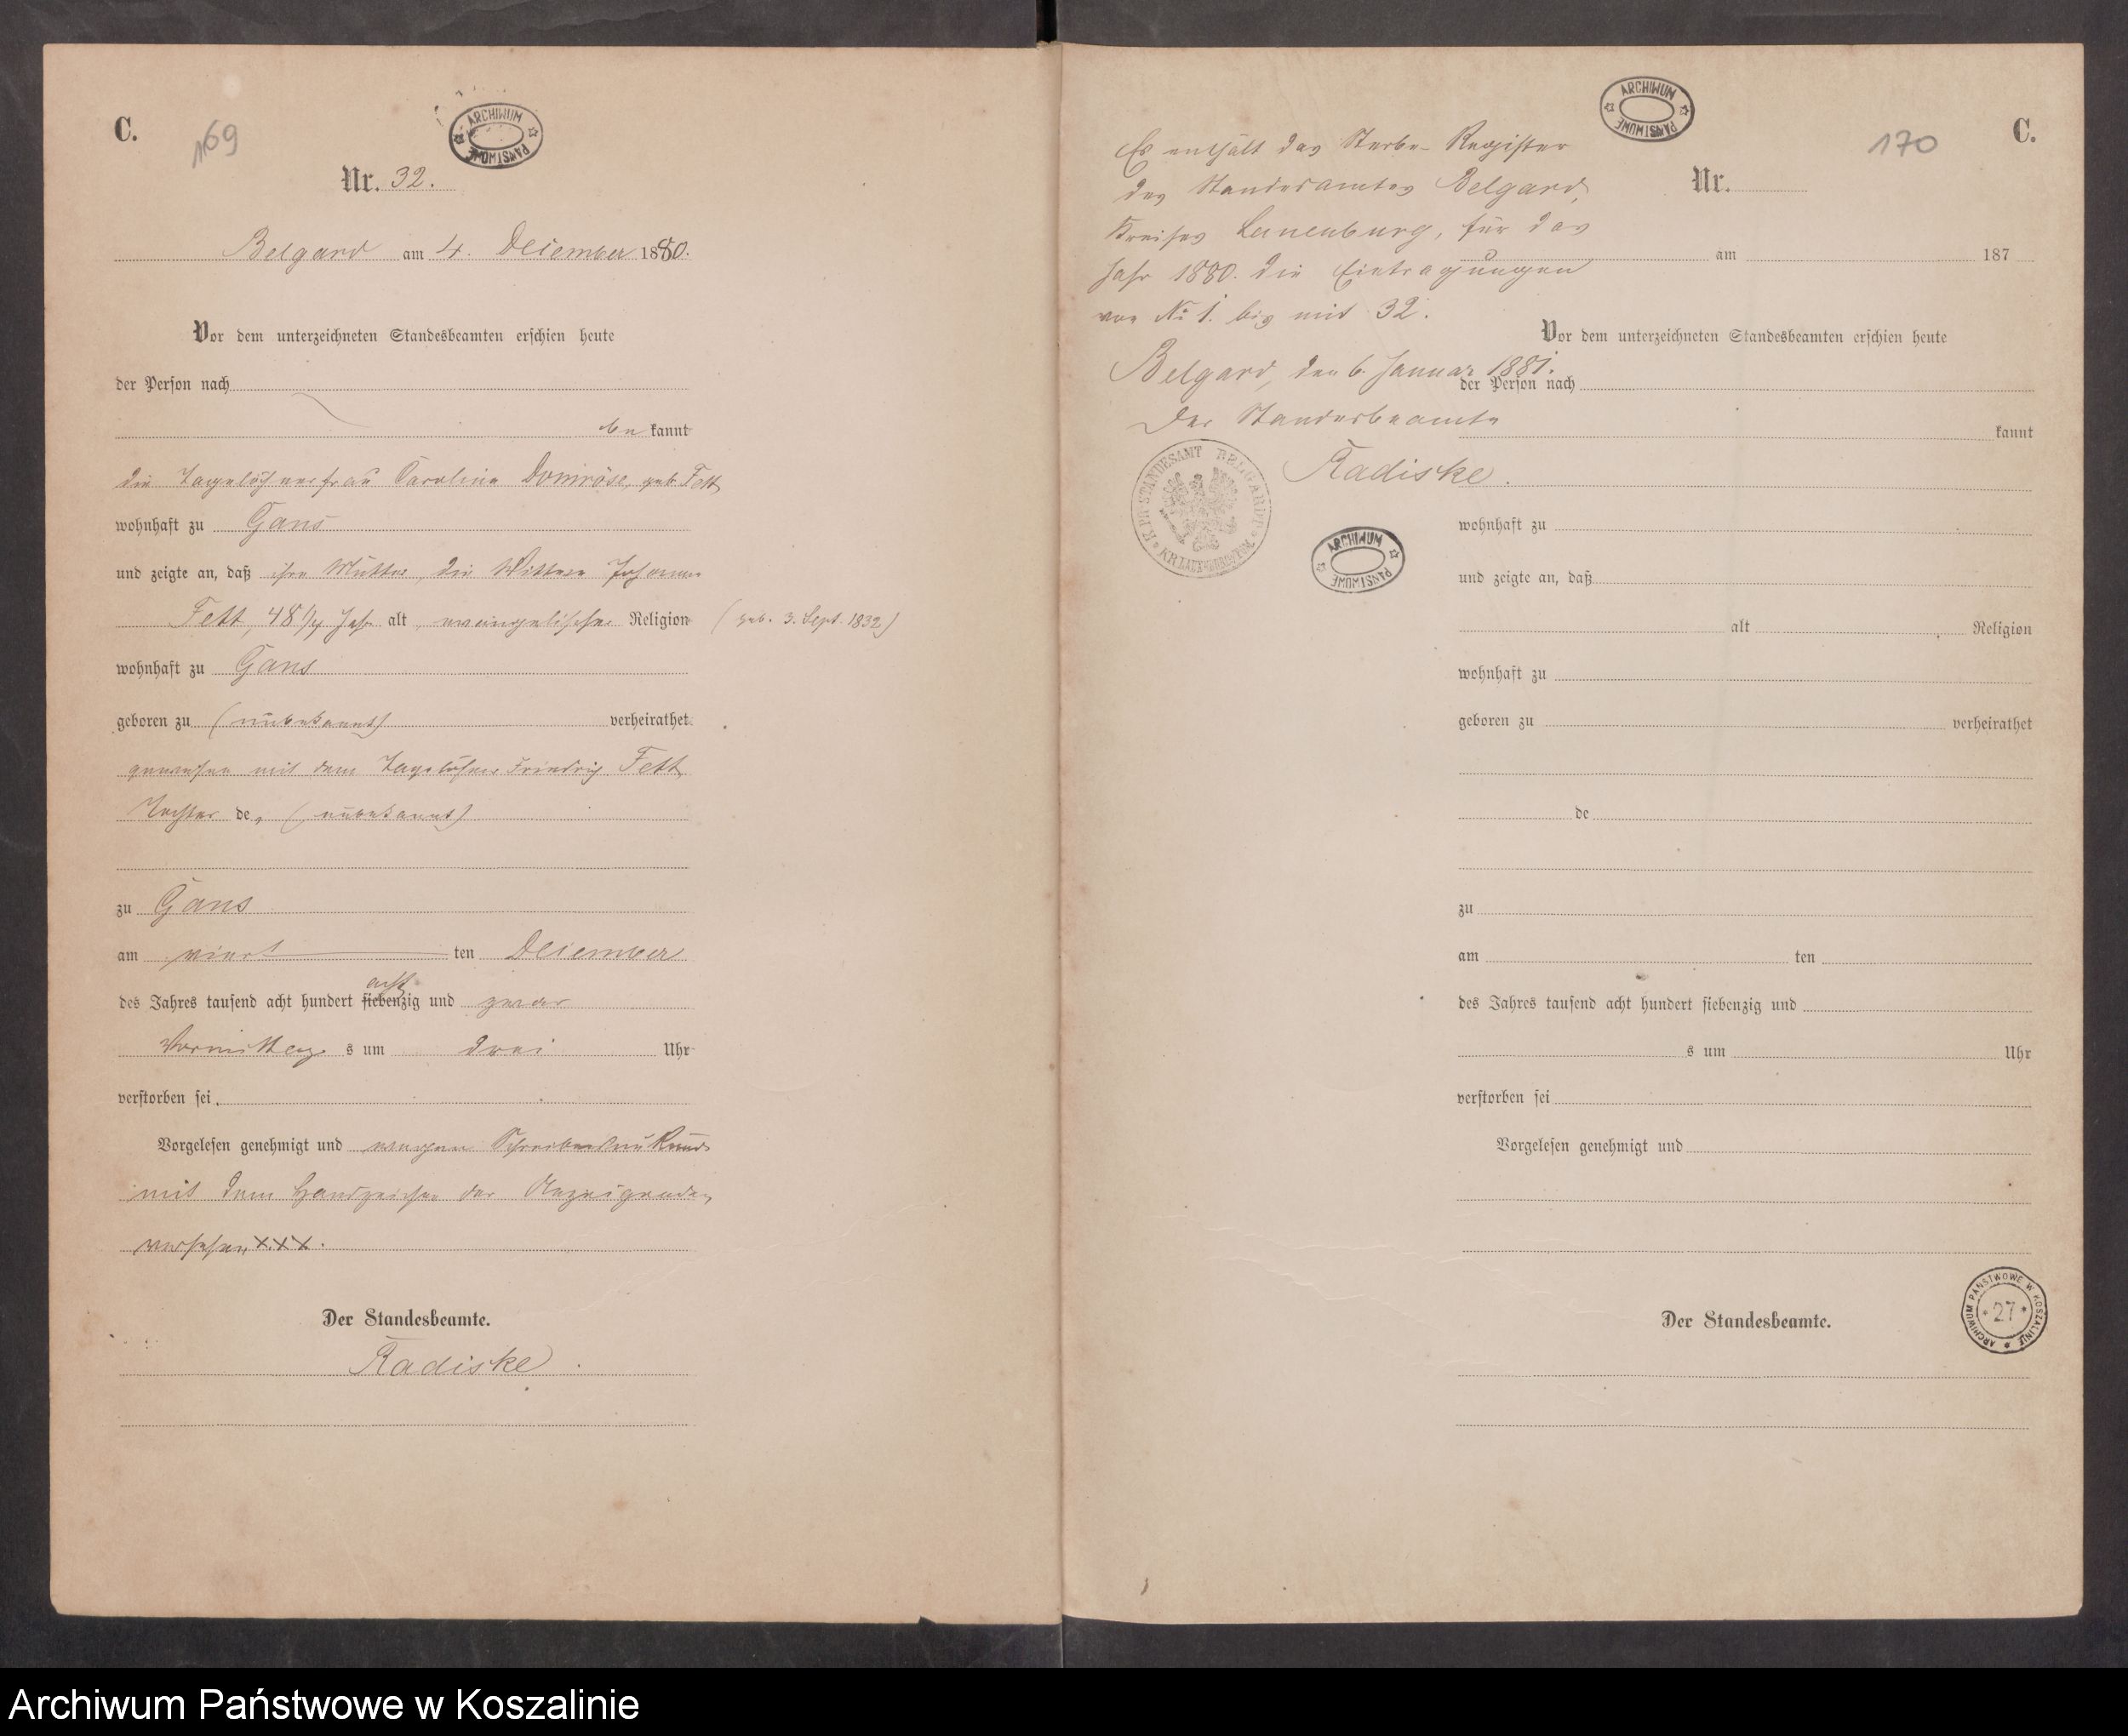 C.
169
ARCHIWUM PAŃSTWOWE
Nr. 32.
Belgard am 4. December 1880.
Vor dem unterzeichneten Standesbeamten erschien heute
der Person nach
be kannt
die Tagelöhnerfrau Caroline Domröse, geb. Fett
wohnhaft zu Gans
und zeigte an, daß ihre Mutter, die Wittwe Johanne
Fett, 48 1/4 Jahr alt, evangelischer Religion (geb. 3. Sept. 1832)
wohnhaft zu Gans
geboren zu (unbekannt) verheirathet
gewesen mit dem Tagelöhner Friedrich Fett,
Tochter de, (unbekannt)
zu Gans
am viert ten December
acht
des Jahres tausend acht hundert siebenzig und zwar
Vormittag s um drei Uhr
verstorben sei.
Vorgelesen genehmigt und wegen Schreibensunkunde
mit dem Handzeichen der Anzeigenden
versehen XXX.
Der Standesbeamte.
Radiske.
C.
170
ARCHIWUM PAŃSTWOWE
Es enthält das Sterbe-Register
des Standesamtes Belgard,
Kreises Lauenburg, für das
Jahr 1880. die Eintragungen
von No 1. bis mit 32.
Belgard, den 6. Januar 1881.
Der Standesbeamte
Radiske.
K. PR. STANDESAMT BELGARD KR. LAUENBURG
ARCHIWUM PAŃSTWOWE
Nr.
am 187
Vor dem unterzeichneten Standesbeamten erschien heute
der Person nach
kannt
wohnhaft zu
und zeigte an, daß
alt Religion
wohnhaft zu
geboren zu verheirathet
de
zu
am ten
des Jahres tausend acht hundert siebenzig und
s um Uhr
verstorben sei
Vorgelesen genehmigt und
Der Standesbeamte.
ARCHIWUM PAŃSTWOWE W KOSZALINIE
27
Archiwum Państwowe w Koszalinie